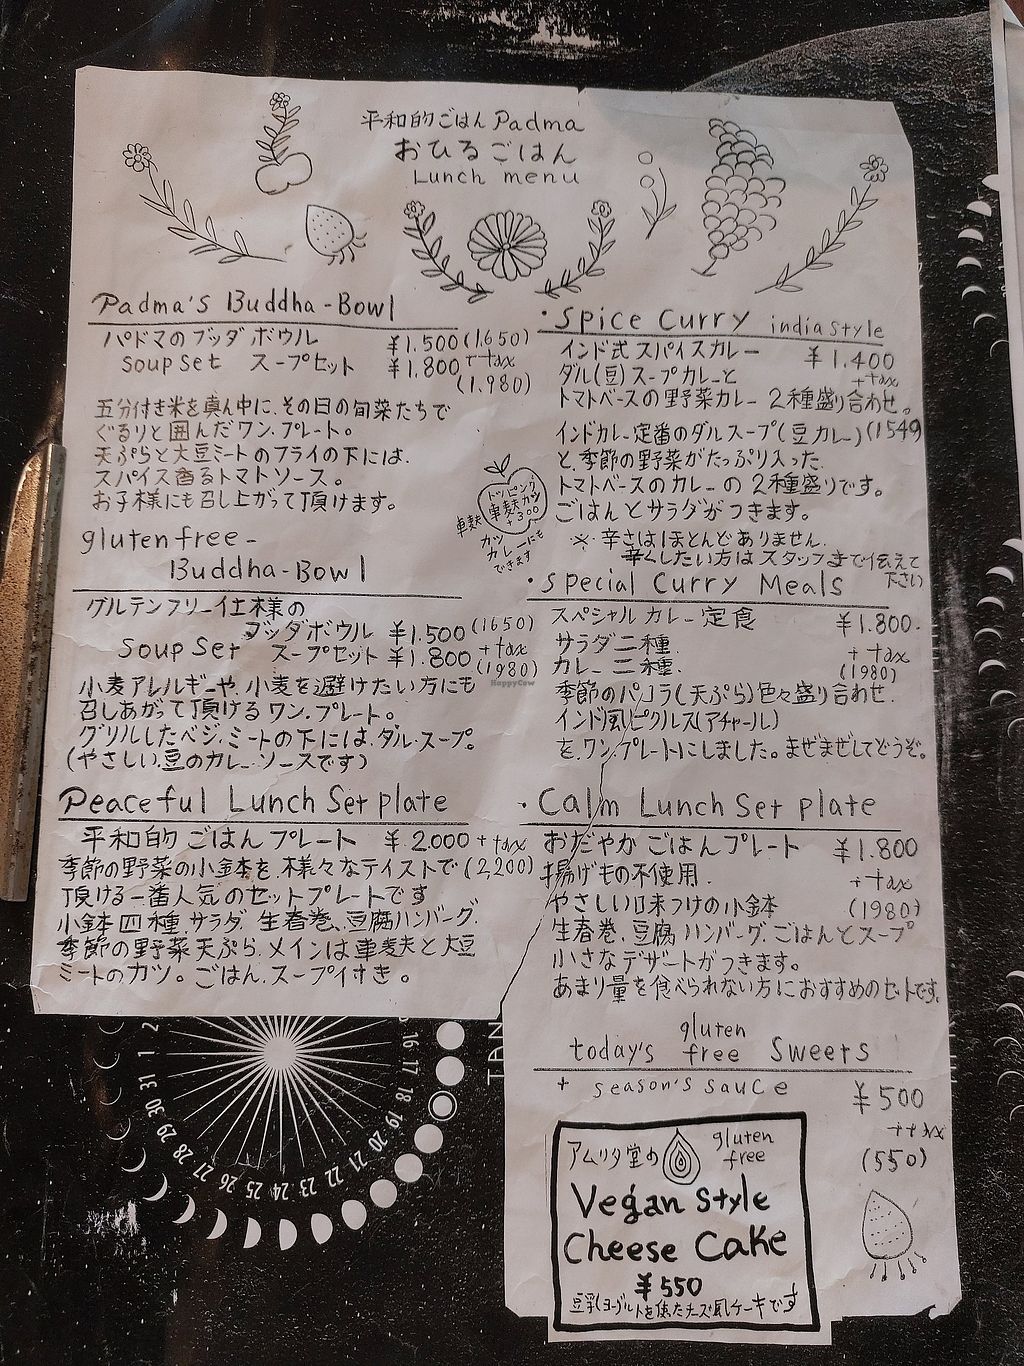 平和的ごはん Padma
おひるごはん
Lunch menu
Padma's Buddha-Bowl
パドマのブッダボウル ¥1.500(1.650)
Soup Set スープセット ¥1.800 + tax
(1.980)
五分付き米を真ん中に、その日の旬菜たちで
ぐるりと囲んだワン.プレート。
天ぷらと大豆ミートのフライの下には、
スパイス香るトマトソース。
お子様にも召し上がって頂けます。
gluten free -
Buddha-Bowl
グルテンフリー仕様の
ブッダボウル ¥1.500 (1650)
Soup Set スープセット ¥1.800 + tax
(1980)
小麦アレルギーや、小麦を避けたい方にも
召しあがって頂けるワン.プレート。
グリルしたベジ.ミートの下には、ダル.スープ。
(やさしい豆のカレーソースです)
Peaceful Lunch Set plate
平和的ごはんプレート ¥2.000 + tax
季節の野菜の小鉢を、様々なテイストで (2,200)
頂ける一番人気のセットプレートです
小鉢四種、サラダ、生春巻、豆腐ハンバーグ、
季節の野菜天ぷら、メインは車麩と大豆
ミートのカツ。ごはん、スープ付き。
トッピング
車麩カツ
+300
車麩
カツ
カレーにも
できます
・Spice Curry india style
インド式スパイスカレー ¥1.400
+ tax
ダル(豆)スープカレーと
トマトベースの野菜カレー 2種盛り合わせ。
インドカレー定番のダルスープ(豆カレー) (1549
と、季節の野菜がたっぷり入った
トマトベースのカレーの2種盛りです。
ごはんとサラダがつきます。
※ 辛さはほとんどありません。
辛くしたい方はスタッフまで伝えて
下さい
・Special Curry Meals
スペシャルカレー定食 ¥1.800-
サラダ二種 + tax
カレー二種 (1980)
季節のパコラ(天ぷら)色々盛り合わせ
インド風ピクルス(アチャール)
を、ワン.プレートにしました。まぜまぜしてどうぞ。
・Calm Lunch Set plate
おだやかごはんプレート ¥1.800
揚げもの不使用 + tax
やさしい味つけの小鉢 (1980)
生春巻、豆腐ハンバーグ、ごはんとスープ
小さなデザートがつきます。
あまり量を食べられない方におすすめのセットです。
today's gluten free Sweets
+ season's sauce ¥500
+ tax
(550)
アムリタ堂の gluten
free
Vegan Style
Cheese Cake
¥550
豆乳ヨーグルトを使ったチーズ風ケーキです
HappyCow
TAN
2
1
31
30
29
28
27
26
25
24
23
22
21
20
19
18
17
16